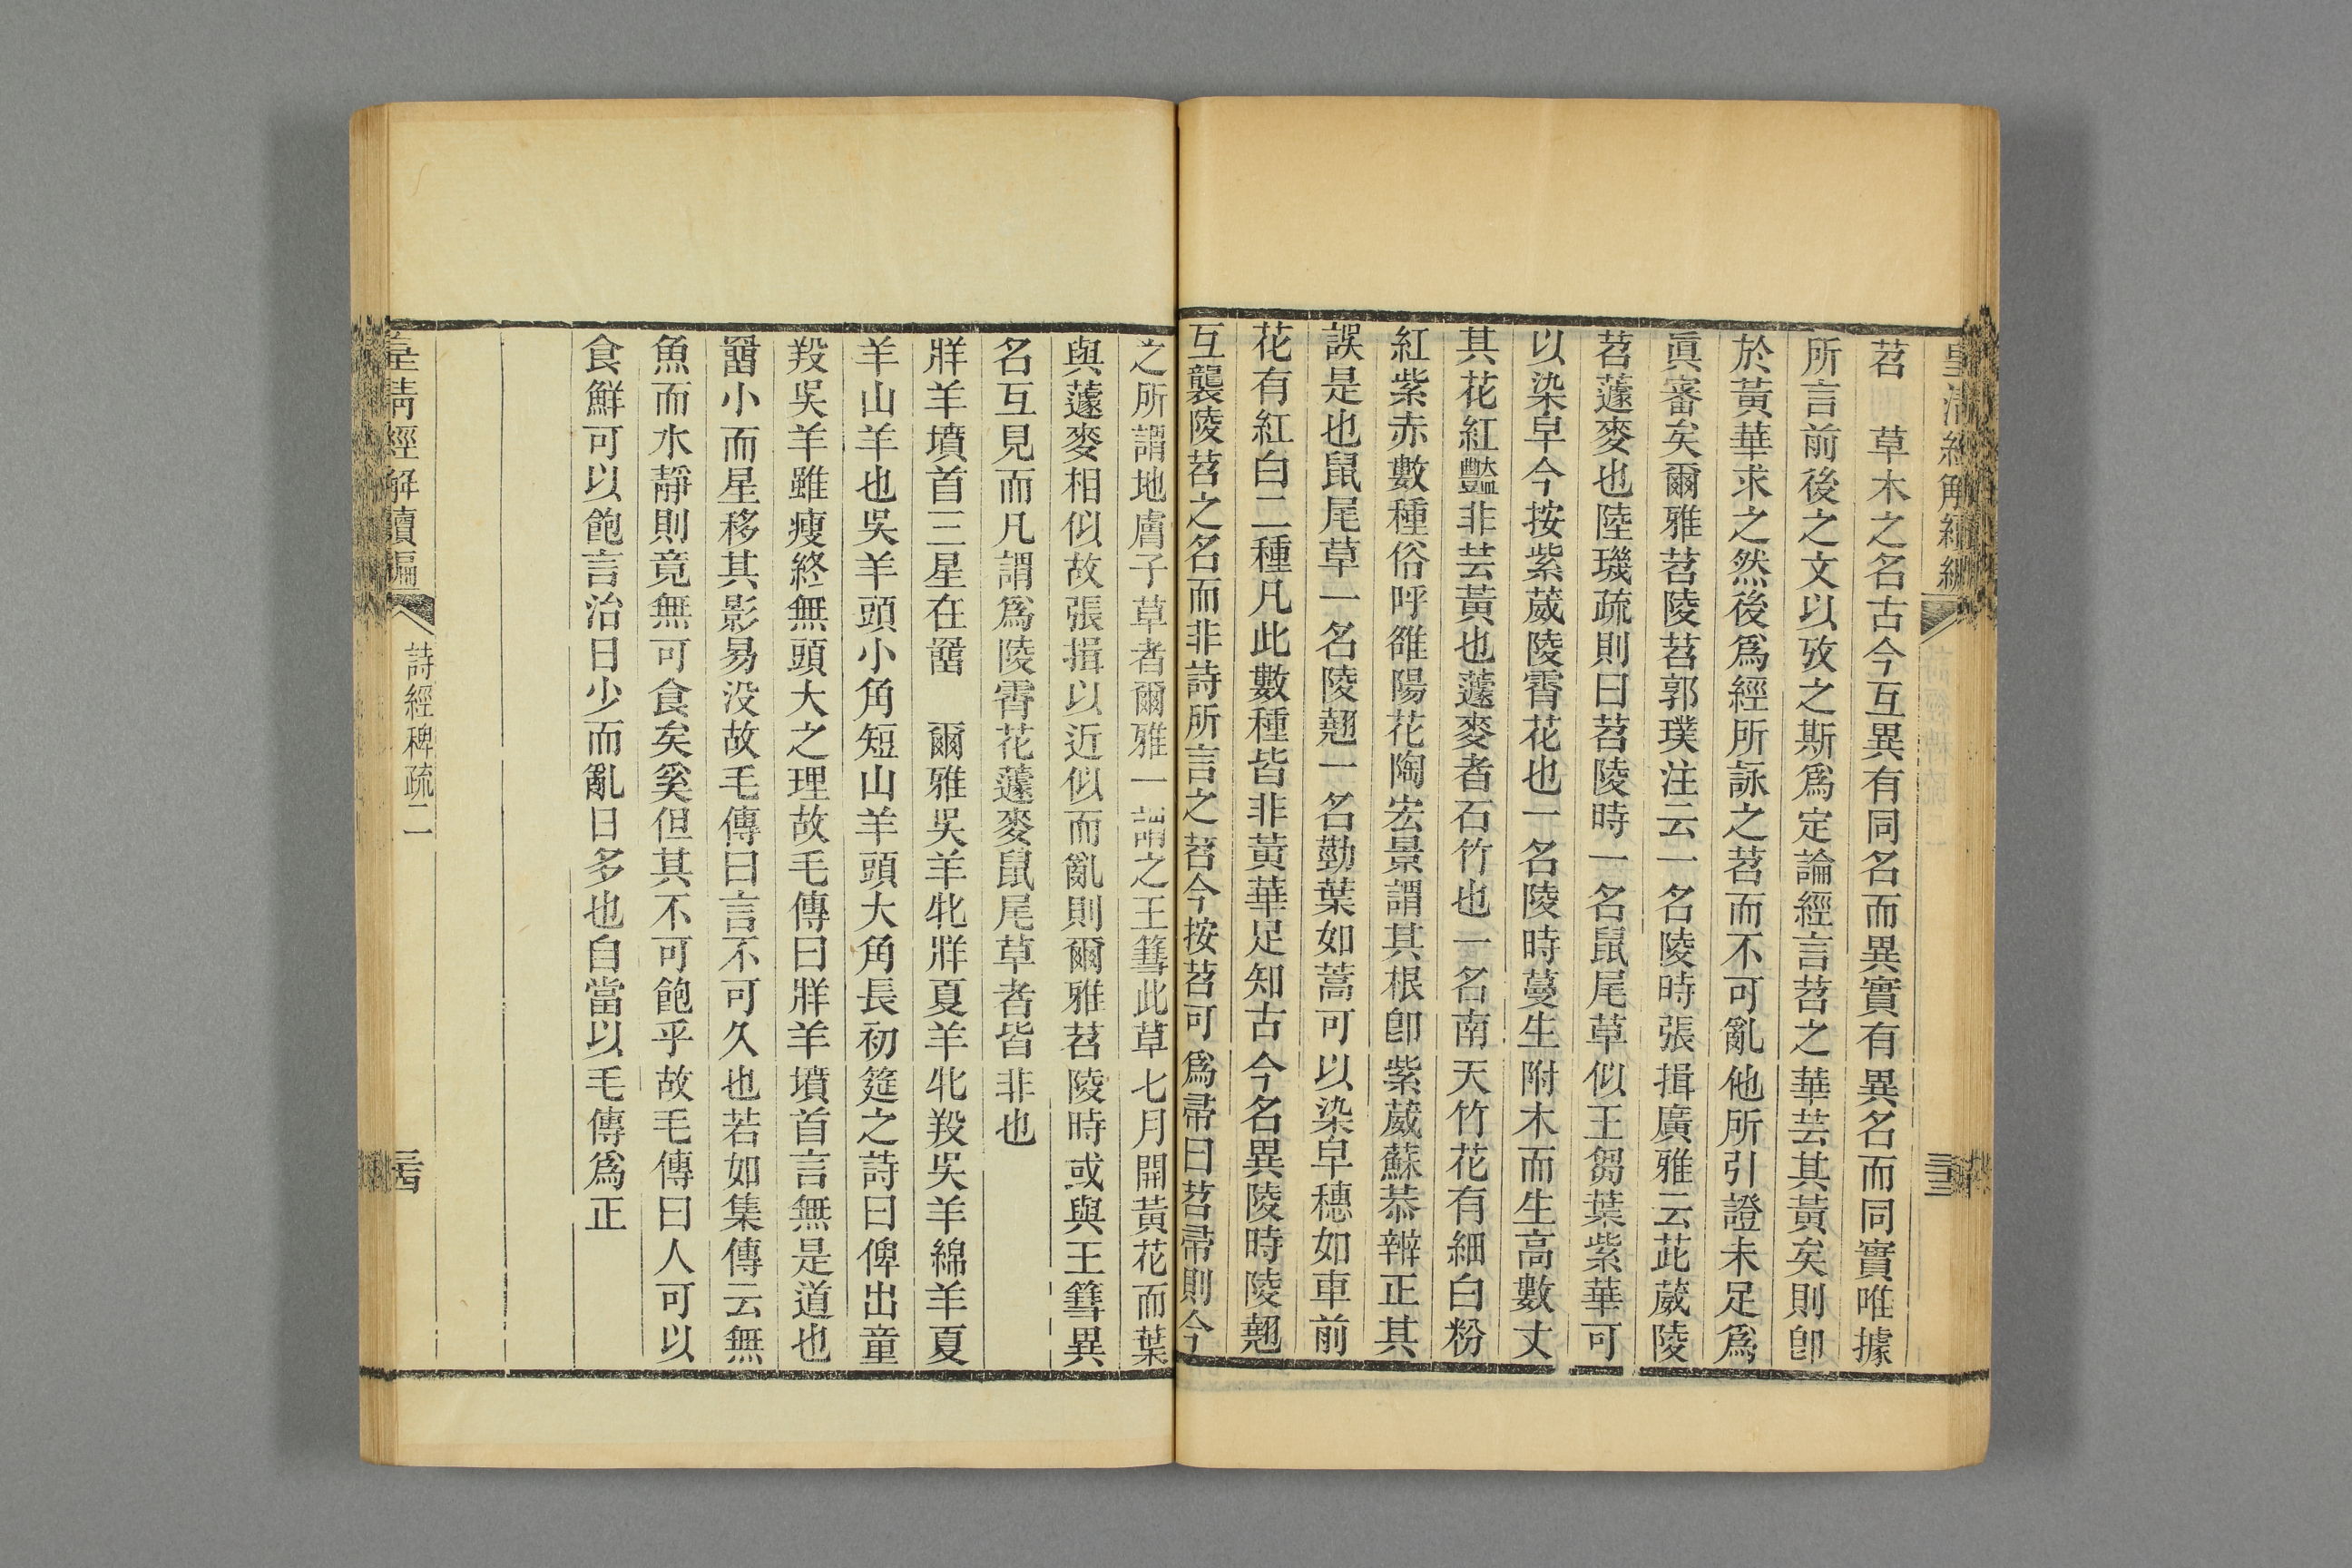 皇清經解續編
三三
苕　草木之名古今互異有同名而異實有異名而同實唯據
所言前後之文以攷之斯爲定論經言苕之華芸其黃矣則卽
於黃華求之然後爲經所詠之苕而不可亂他所引證未足爲
眞審矣爾雅苕陵苕郭璞注云一名陵時張揖廣雅云茈葳陵
苕蘧麥也陸璣疏則曰苕陵時一名鼠尾草似王芻葉紫華可
以染皁今按紫葳陵霄花也一名陵時蔓生附木而生高數丈
其花紅豔非芸黃也蘧麥者石竹也一名南天竹花有細白粉
紅紫赤數種俗呼雒陽花陶宏景謂其根卽紫葳蘇恭辨正其
誤是也鼠尾草一名陵翹一名勁葉如蒿可以染皁穗如車前
花有紅白二種凡此數種皆非黃華足知古今名異陵時陵翹
互襲陵苕之名而非詩所言之苕今按苕可爲帚曰苕帚則今
之所謂地膚子草者爾雅一謂之王篲此草七月開黃花而葉
與蘧麥相似故張揖以近似而亂則爾雅苕陵時或與王篲異
名互見而凡謂爲陵霄花蘧麥鼠尾草者皆非也
牂羊墳首三星在罶　爾雅吳羊牝牂夏羊牝羖吳羊綿羊夏
羊山羊也吳羊頭小角短山羊頭大角長初筵之詩曰俾出童
羖吳羊雖瘦終無頭大之理故毛傳曰牂羊墳首言無是道也
罶小而星移其影易没故毛傳曰言不可久也若如集傳云無
魚而水靜則竟無可食矣奚但其不可飽乎故毛傳曰人可以
食鮮可以飽言治日少而亂日多也自當以毛傳爲正
皇清經解續編
詩經稗疏二
三四